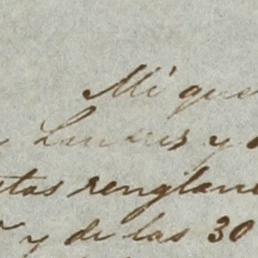 Mi que
Londres y
tas renglone
y de las 30